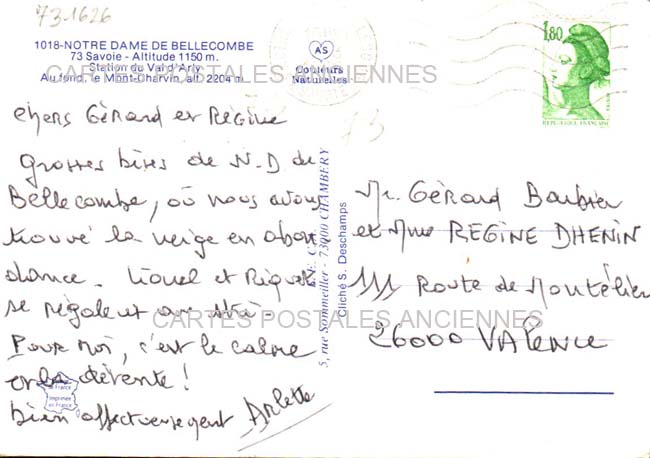 73.1626
1018-NOTRE DAME DE BELLECOMBE
73 Savoie - Altitude 1150 m.
Station du Val d'Arly
Au fond, le Mont-Charvin, alt. 2204 m.
AS
Couleurs
Naturelles
1,80
REPUBLIQUE FRANÇAISE
CARTES POSTALES ANCIENNES
73
chers Gérard et Régine
Grosses bises de N.D de
Bellecombe, où nous avons
trouvé la neige en abon
dance. Lionel et
se régalent au ski.
Pour moi, c'est le calme
et la détente !
bien affectueusement Arlette
5, rue Sommeiller - 73000 CHAMBERY
Cliché S. Deschamps
Mr. Gérard Barbier
et Mme REGINE DHENIN
111 Route de Montélier
26000 VALENCE
CARTES POSTALES ANCIENNES
Imprimée
en France